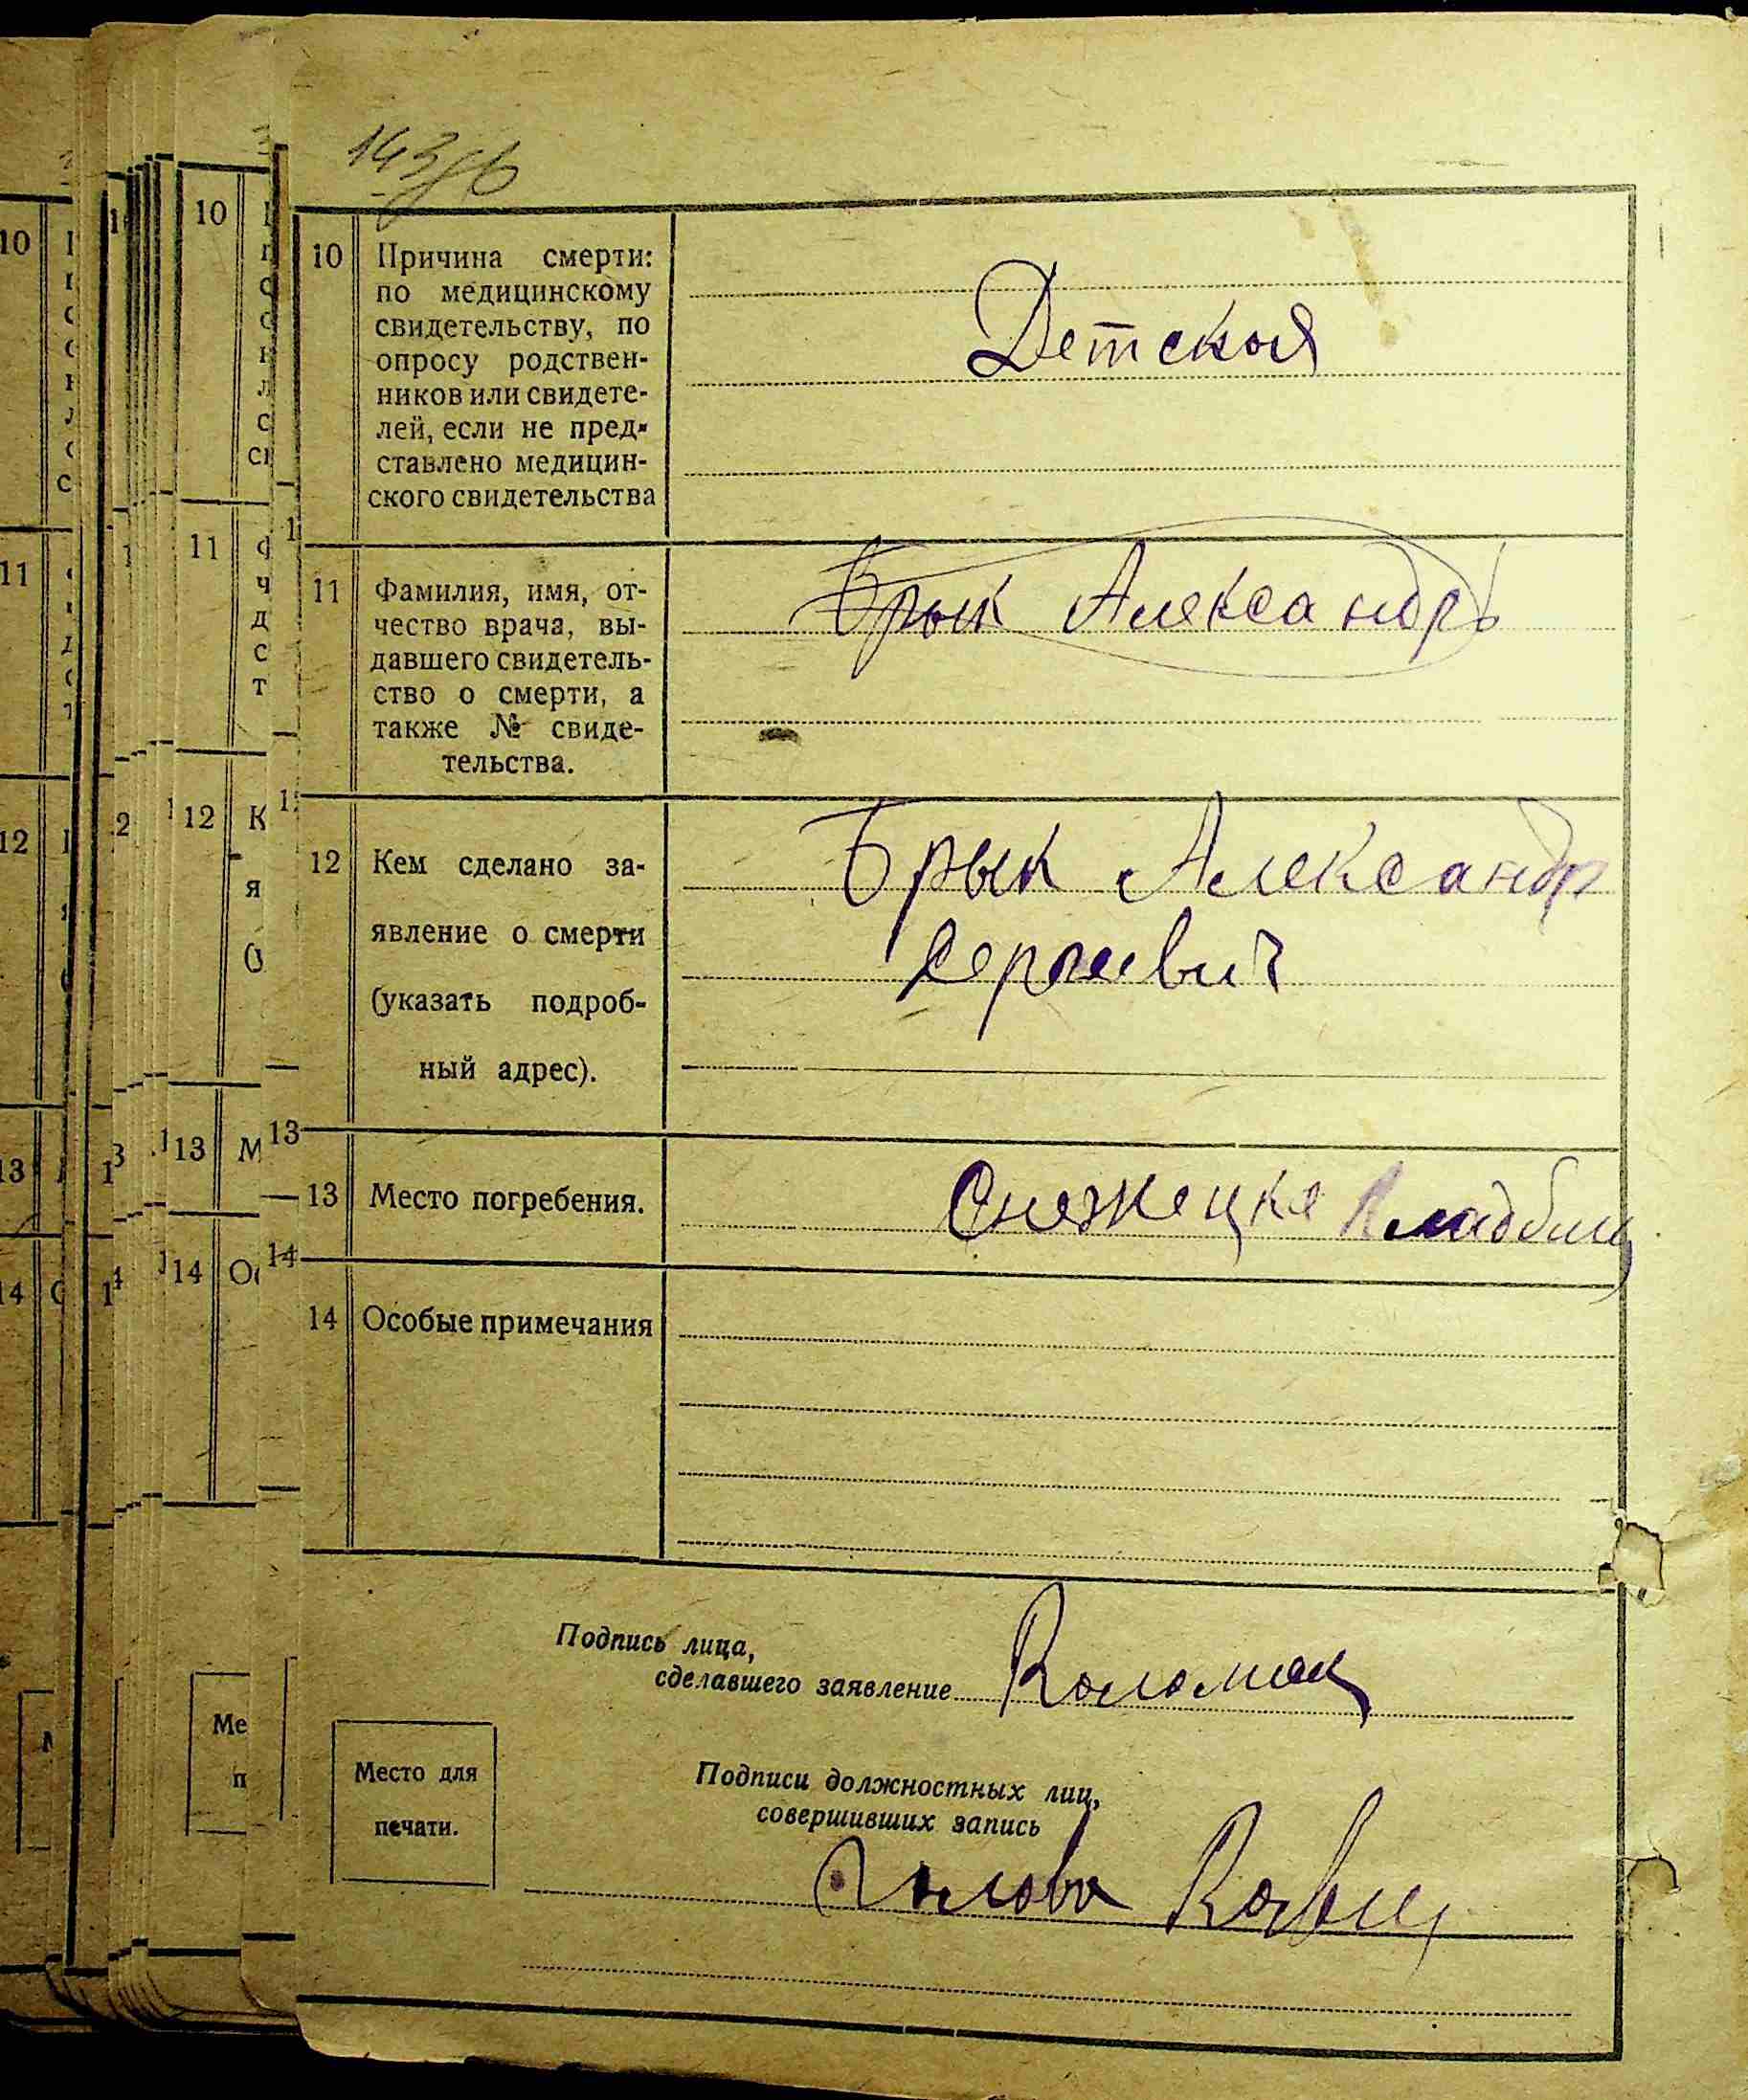 10 Причина смерти:
по медицинскому
свидетельству, по
опросу родствен-
ников или свидете-
лей, если не пред-
ставлено медицин-
ского свидетельства
Детская
11 Фамилия, имя, от-
чество врача, вы-
давшего свидетель-
ство о смерти, а
также № свиде-
тельства.
Брык Александръ
12 Кем сделано за-
явление о смерти
(указать подроб-
ный адрес).
Брык Александр
Сергеевич
13 Место погребения.
14 Особые примечания
Подпись лица,
сделавшего заявление
Место для
печати.
Подписи должностных лиц,
совершивших запись
Голова
10
11
12
13
14
10
11
12
13
14
Ме
п